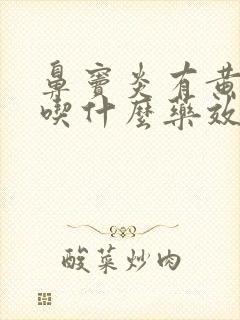 鼻窦炎有黄
喫什麼藥效
酸菜炒肉